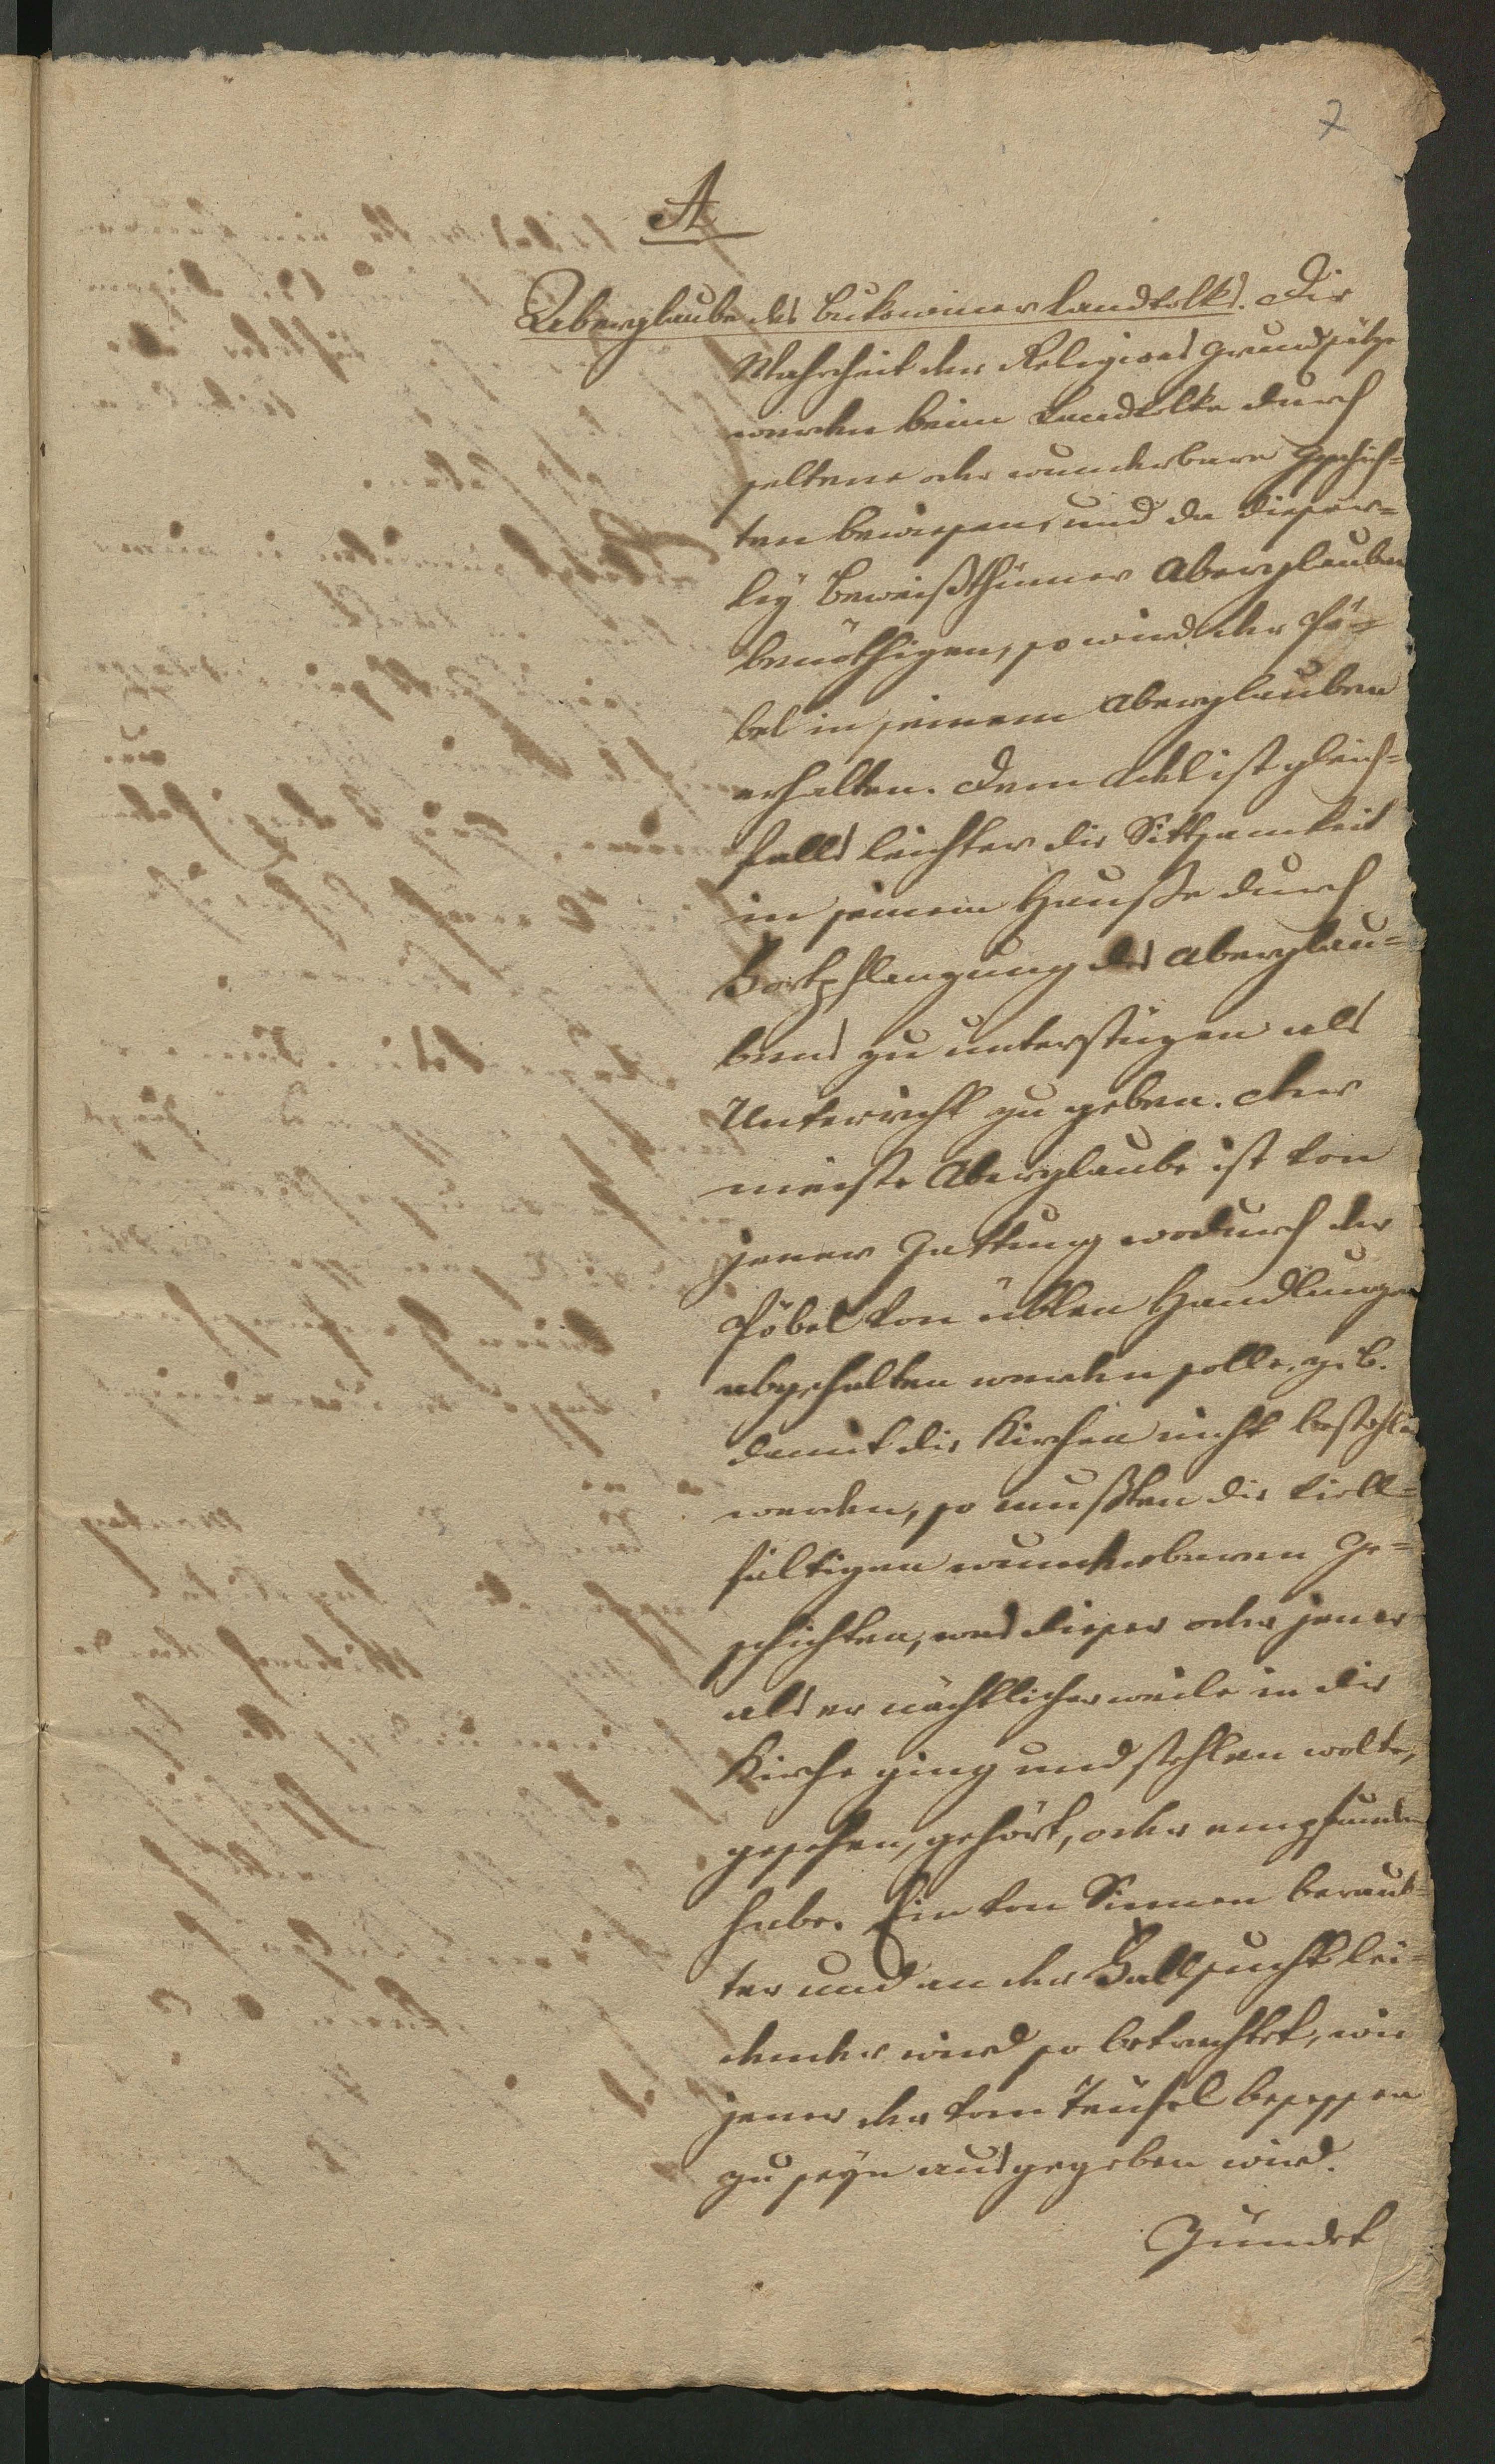 7
A
Aberglaube des Bukowiner Landvolks. Die
Wahrheit der Religions Grundsätze
werden beim Landvolke durch
seltene oder wunderbare Geschich=
ten bewiesen, und da dieser=
ley Beweißthümer Aberglauben
benöthigen, so wird der Pö=
bel in seinem Aberglauben
erhalten. Dem Adel ist gleich=
falls leichter die Sittsamkeit
in seinem Hauße durch
Fortpflanzung des Aberglau=
bens zu unterstüzen als
Unterricht zu geben. Der
meiste Aberglaube ist von
jener Gattung wodurch der
Pöbel von üblen Handlungen
abgehalten werden solle, z. B.
damit die Kirchen nicht bestohlen
werden, so mußten die viel=
fältigen wunderbaren Ge=
schichten, was dieser oder jener
als er nächtlicher weile in die
Kirche ging und stehlen wolte,
gesehen, gehört, oder empfunden
habe. Ein von Sinnen beraub=
ter und an der Fallsucht lei=
dender wird so betrachtet, wie
jener der vom Teüfel besessen
zu seyn ausgegeben wird.
Zündet